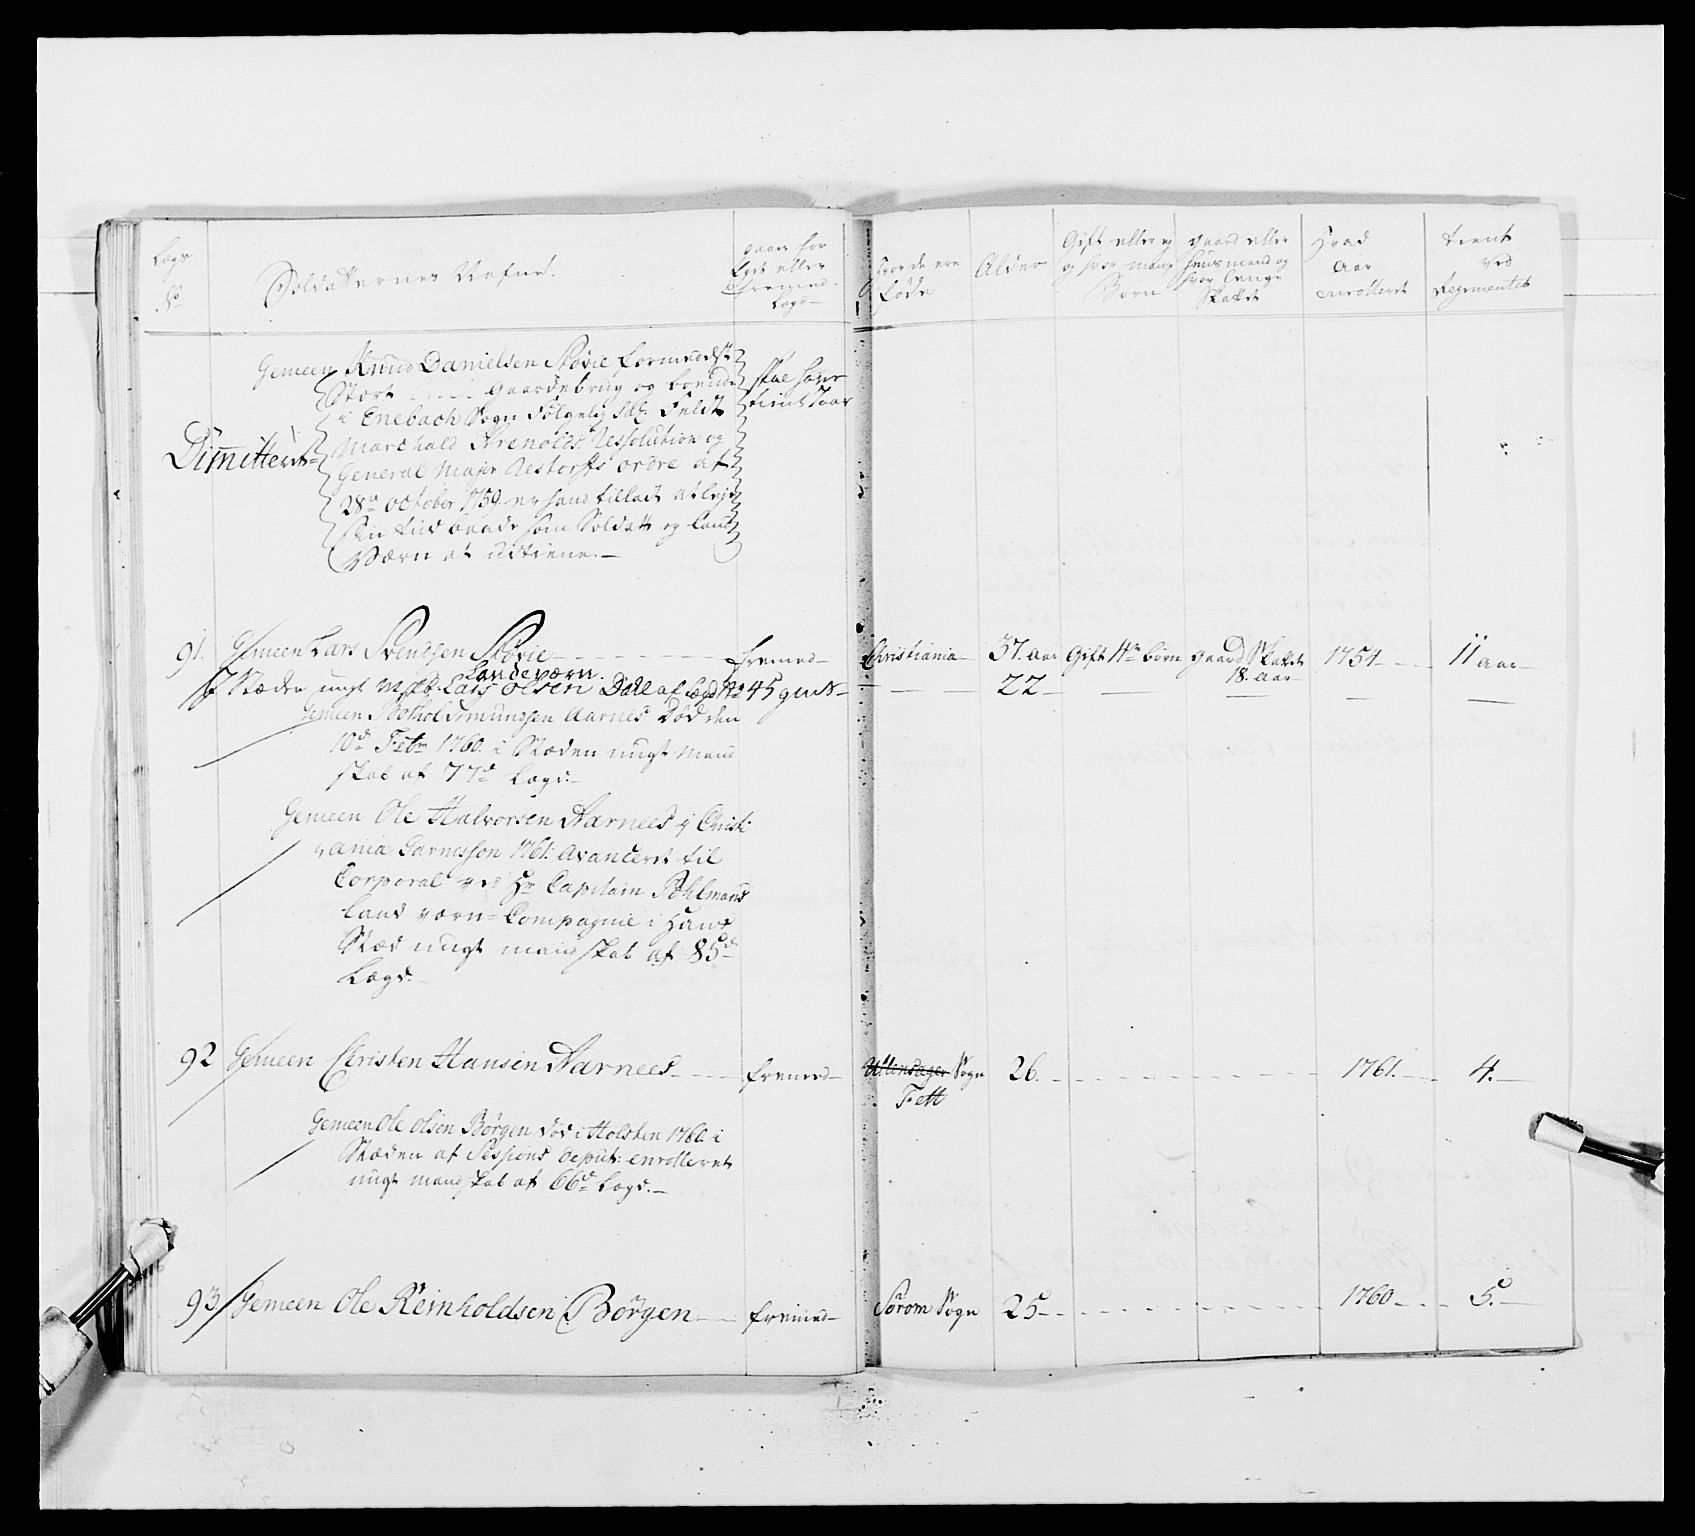 Lægs No
Soldatternes Nafne.
gaaer for Eget eller fremmed Lægd
hvor de ere føde
Alder
Gift eller ej og hvor mange Børn
gaard eller huusmand og hvor længe Skattet
Hvad Aar enrolleret
tient ved Regimentet
Gemeen Knud Danielsen Støvie formedelst
Stort gaardebrug og boende
i Enebach Sogn følgelig Feldt
Marchald Arenolds Ressolution og
General Major Restorfs ordre af
28de october 1759 er hand tilladt at leje
Sin tiid baade som Soldat og Land
Værn at udtiene.—
skal have tient 5 aar
Dimitteret
91. Gemeen Lars Svendsen Støvie fremed Christiania 37. aar Gift 4re børn gaard Skattet 18. aar 1754 11 aar
Landeværn.
I Stæden ungt Mskb. Lars Olsen Dahl af Lægd No 45 gent 22
Gemeen Amundsen Aarnes Død den
10de Febr 1760. i Stæden ungt Mand
skab af 77de Lægd.
Gemeen Ole Halvorsen Aarnees i Christi
ania Garnesson 1761. Avanceret til
Corporal ved Hr Capitain Pohlmans
Land værn Compagnie i Hans
Stæd ungt mandskab af 85de
Lægd.
92 Gemeen Christen Hansen Aarnees fremed Ullensager Sogn 26. 1761. 4.
Fett
Gemeen Ole Olsen Børgen død i Holsten 1760 i
Stæden af Sessions deput: enrolleret
ungt mandskab af 66de Lægd.—
93 Gemeen Ole Reinholdsen Børgen fremed Sørom Sogn 25 1760 5.